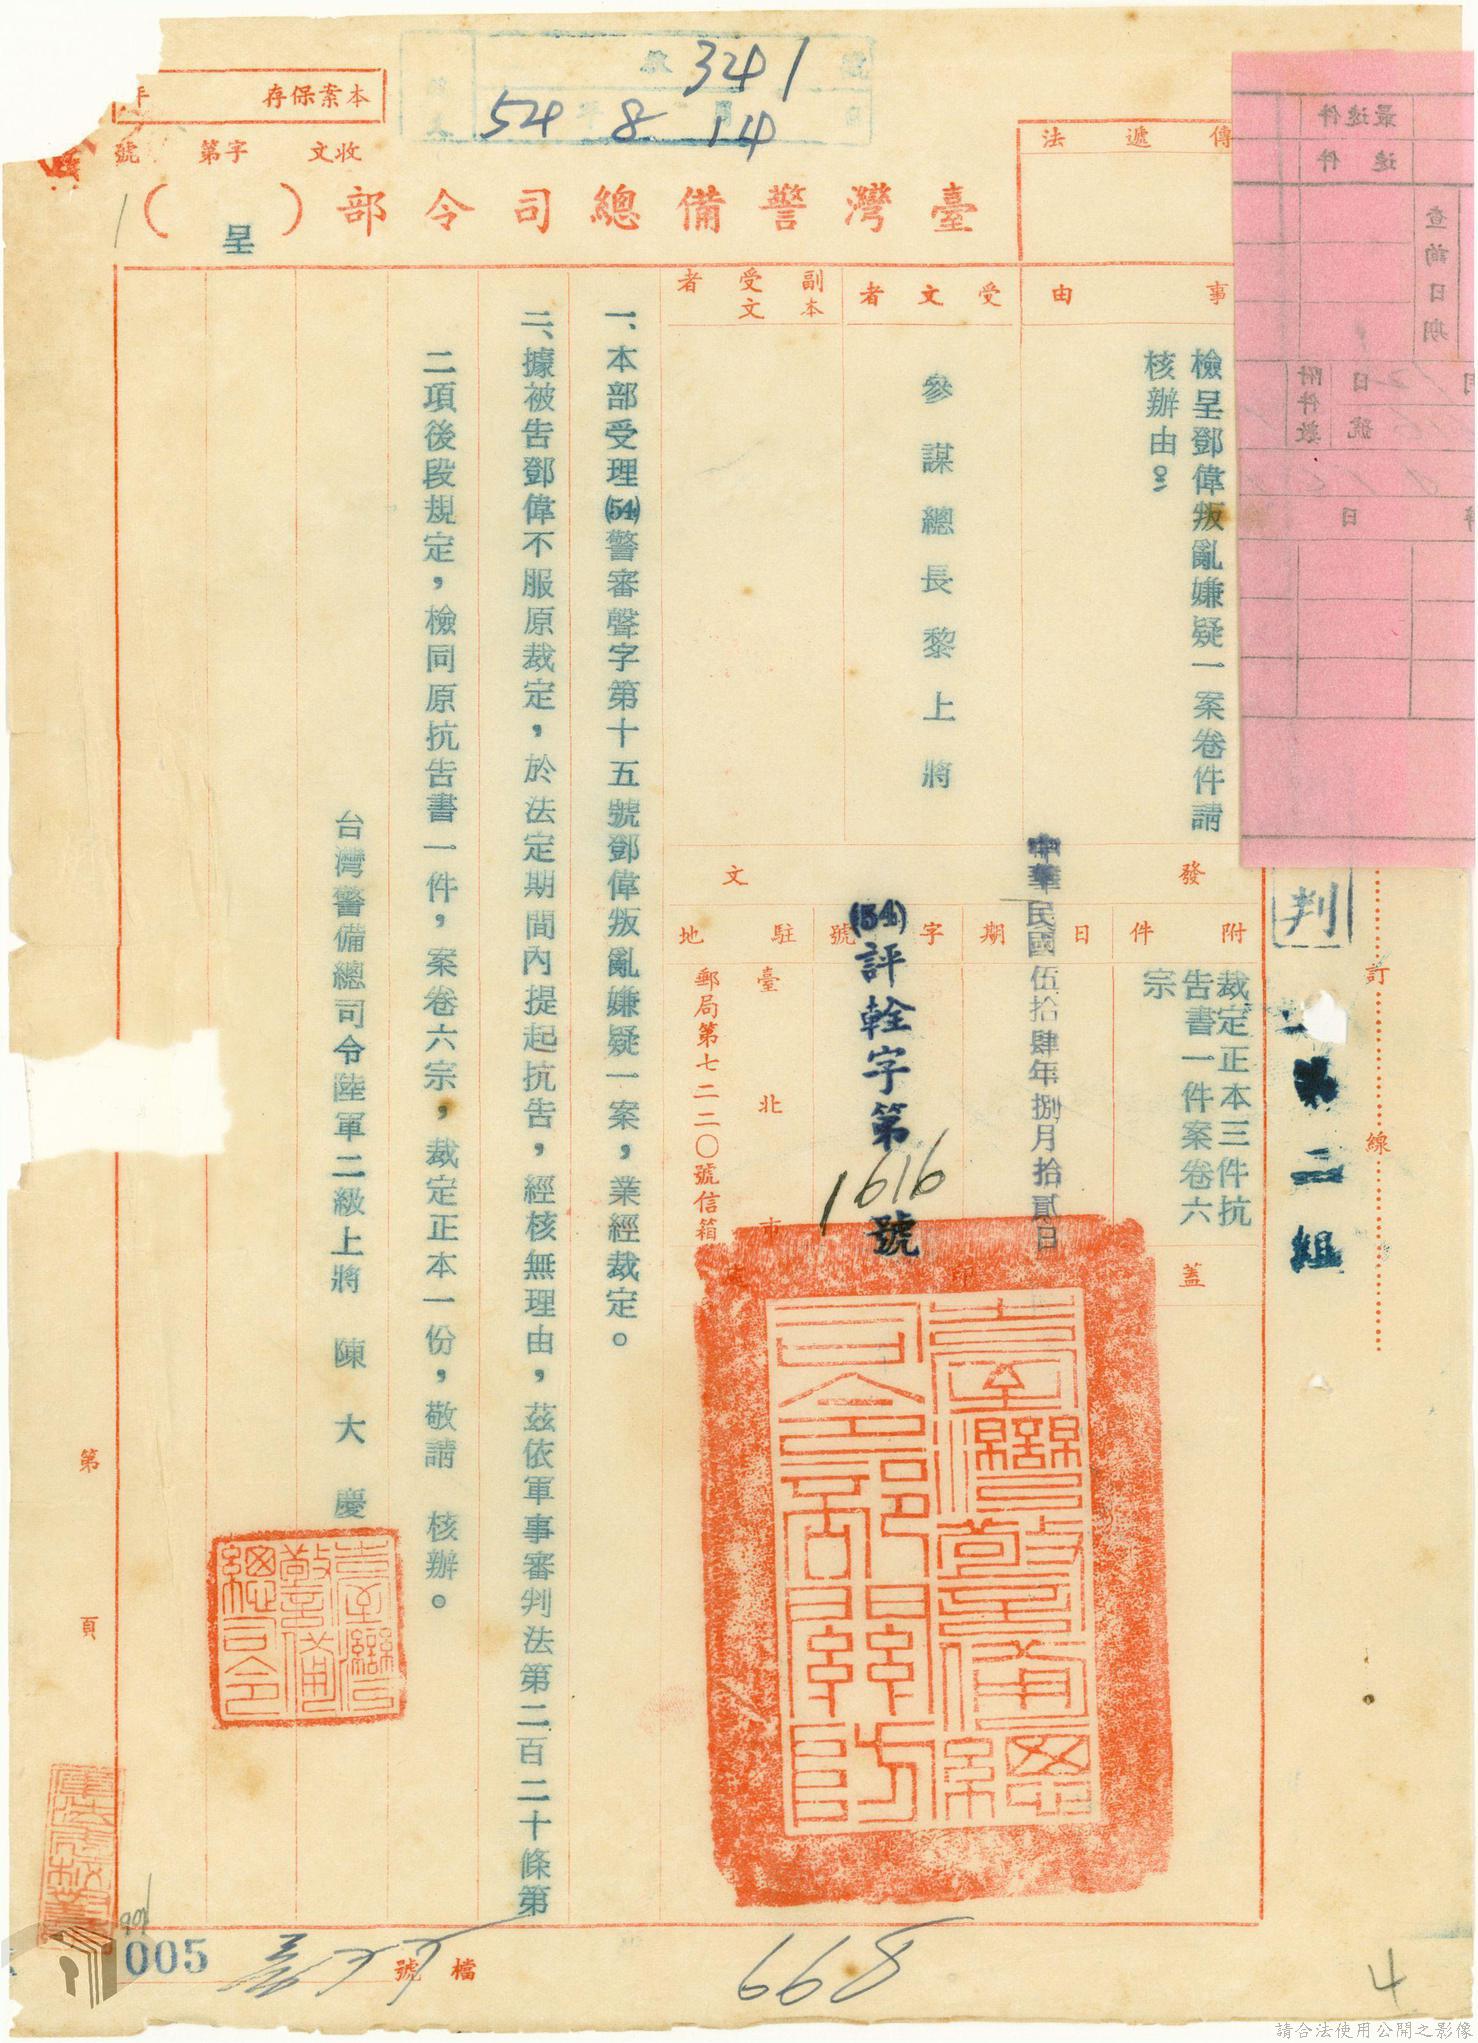 341
54 8 14
本案保存 年
收文 字第 號
傳遞法
臺灣警備總司令部（呈）
事由
檢呈鄧偉叛亂嫌疑一案卷件請
核辦由。
受文者
參謀總長黎上將
副本受文者
發文
附件
裁定正本三件抗
告書一件案卷六
宗
日期
中華民國伍拾肆年捌月拾貳日
字號
(54)評輇字第1616號
駐地
臺北市
郵局第七二二〇號信箱
蓋印
臺灣警備總司令部關防
一、本部受理(54)警審聲字第十五號鄧偉叛亂嫌疑一案，業經裁定。
二、據被告鄧偉不服原裁定，於法定期間內提起抗告，經核無理由，茲依軍事審判法第二百二十條第
二項後段規定，檢同原抗告書一件，案卷六宗，裁定正本一份，敬請 核辦。
台灣警備總司令陸軍二級上將 陳大慶
臺灣警備總司令
第 頁
判
第二組
訂 線
最速件
速件
查詢日期
附件數
號
日
檔號
668
005
4
請合法使用公開之影像